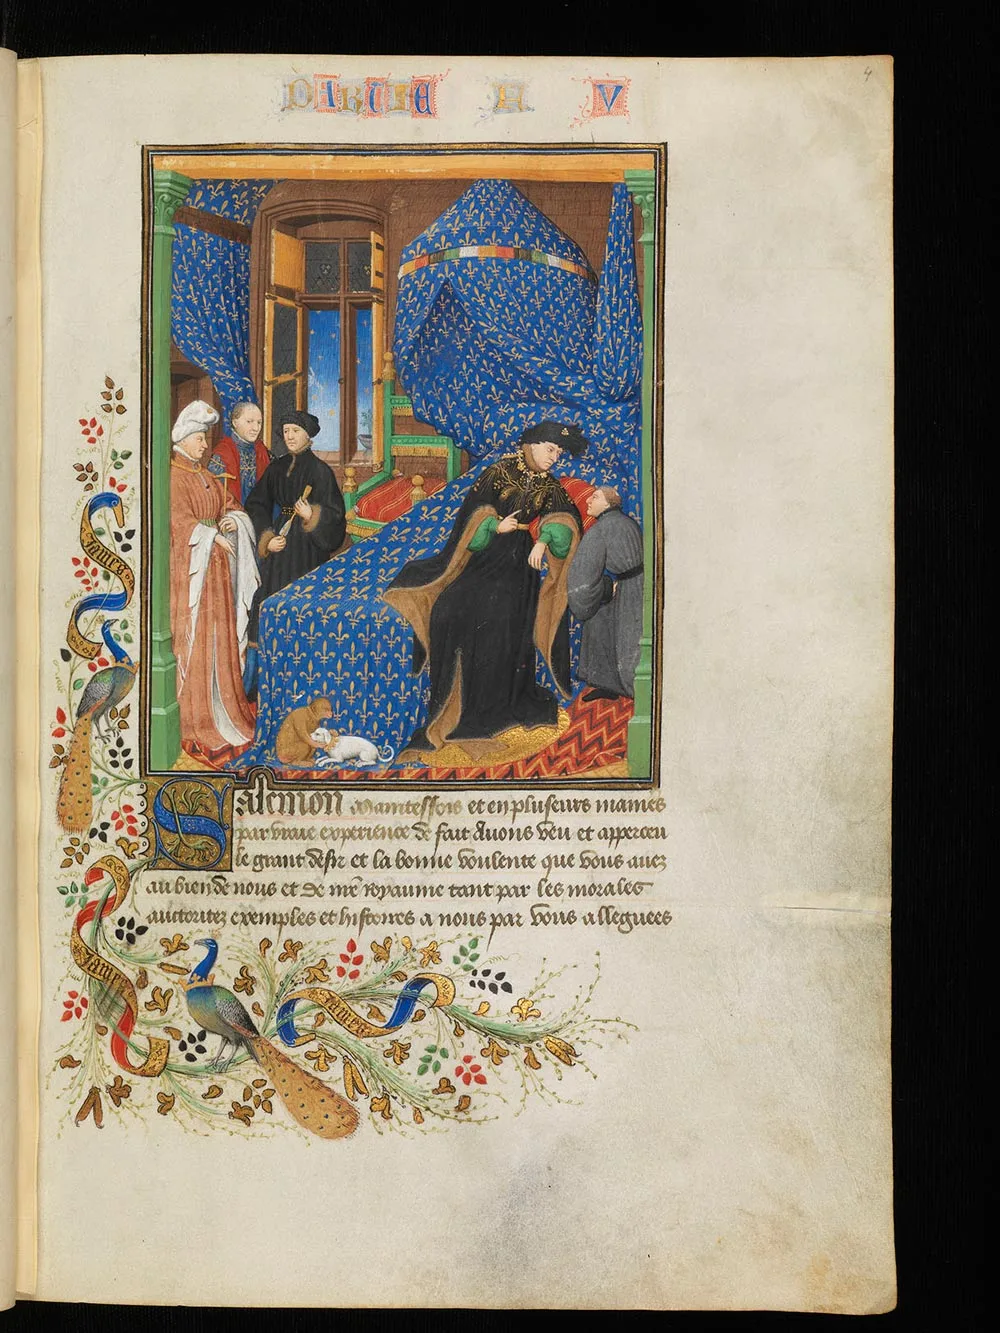 4
PARTIE H V
Salemon Maintesfois et en pluseurs manieres
par vraie experience de fait Avons veu et apperceu
le grant desir et la bonne voulente que vous avez
au bien de nous et de nre Royaume tant par les morales
auctoritez exemples et histoires a nous par vous alleguees
Jamez
Jamez
Jamez